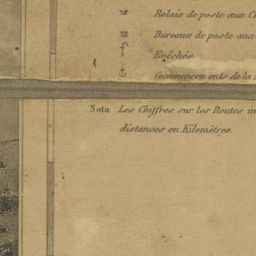 Relais de poste aux C
Bureaux de poste aux
Evêchés
de la
Nota Les Chiffres sur les Routes in
distances en Kilomètres.